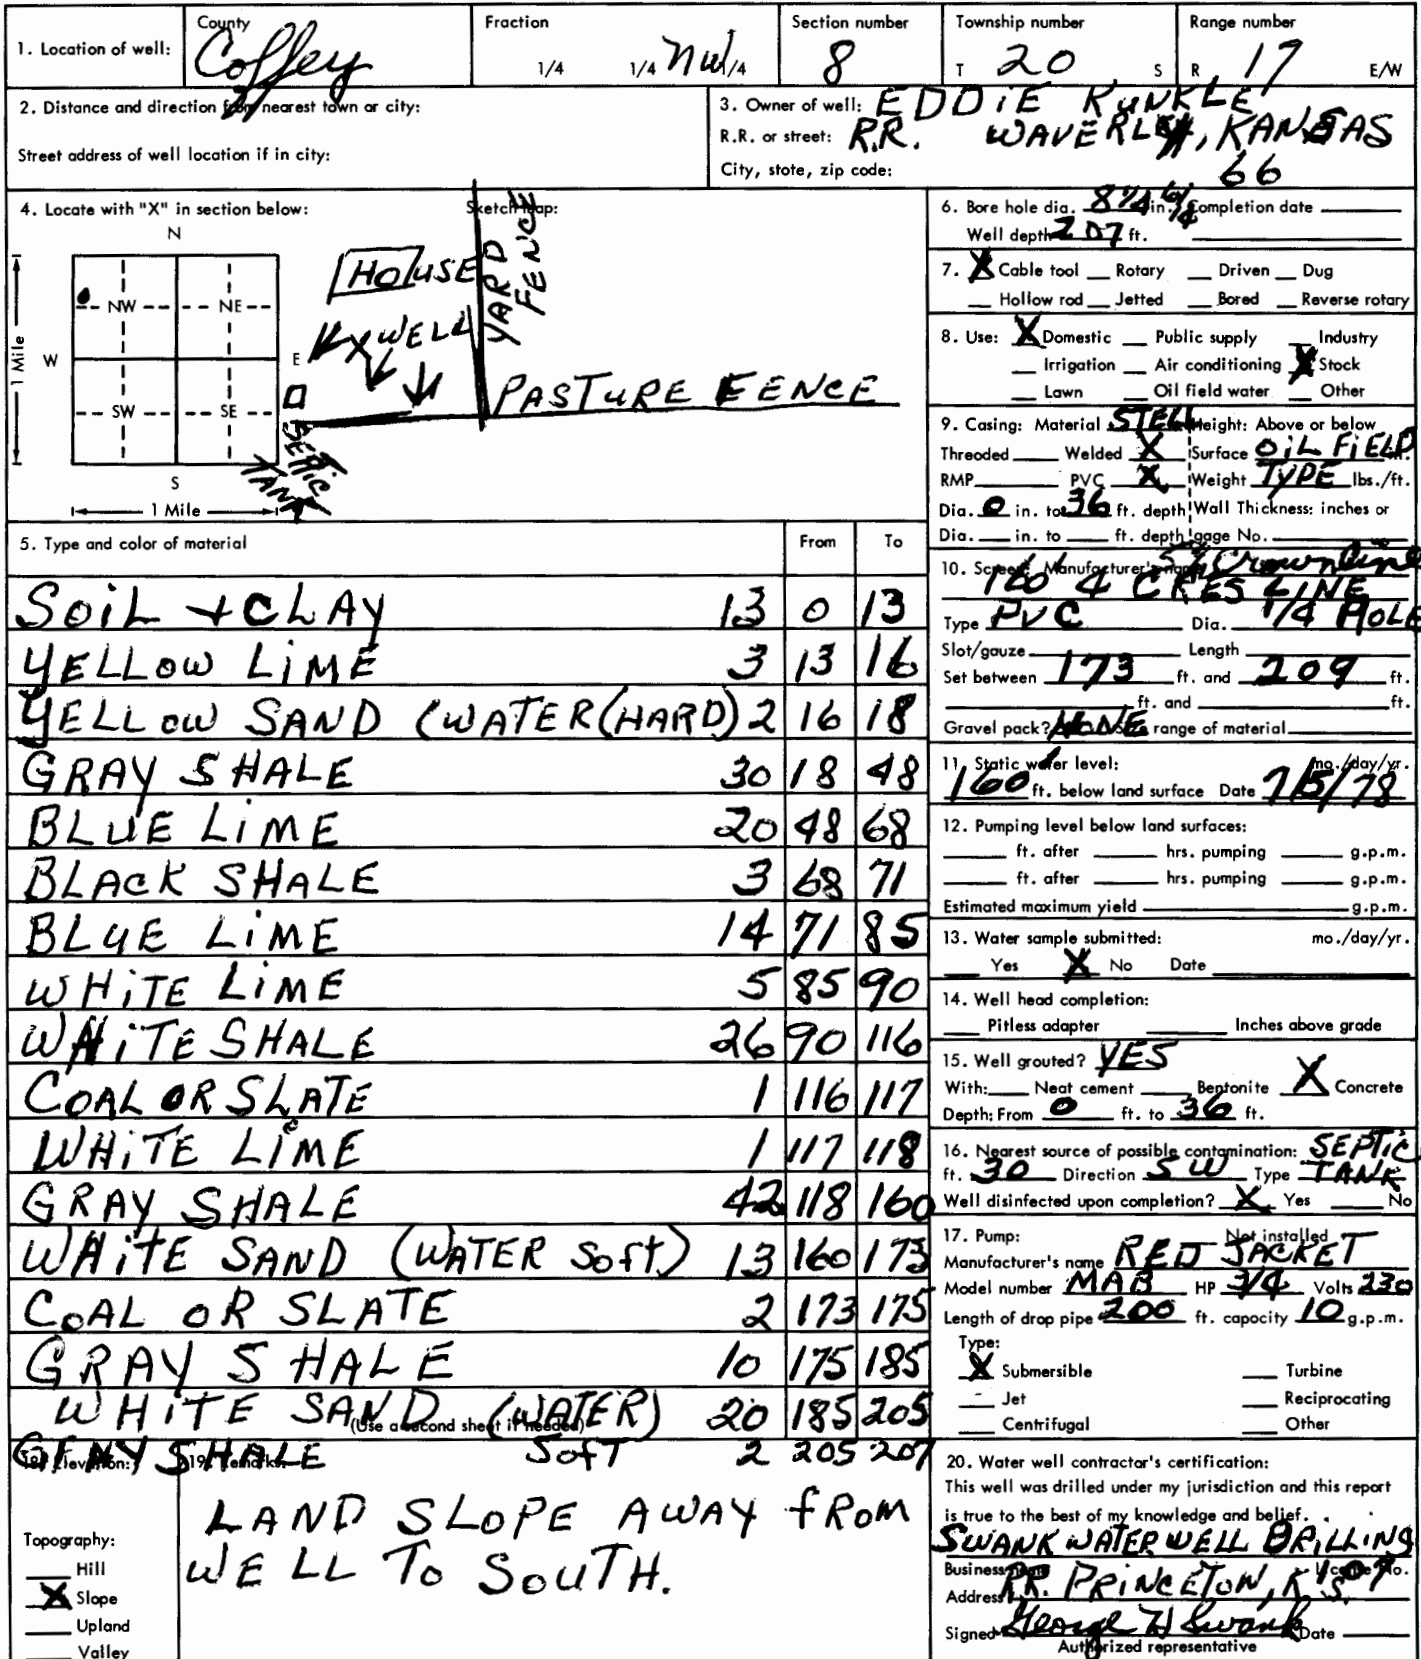 1. Location of well: County Coffey Fraction 1/4 1/4 NW 1/4 Section number 8 Township number T 20 S Range number R 17 E/W
2. Distance and direction from nearest town or city:
Street address of well location if in city:
3. Owner of well: EDDIE KUNKLE
R.R. or street: R.R. WAVERLY, KANSAS
City, state, zip code: 66
4. Locate with "X" in section below:
N
NW NE
W E
SW SE
S
1 Mile
1 Mile
Sketch map:
HOUSE
YARD FENCE
X WELL
PASTURE FENCE
SEPTIC TANK
5. Type and color of material From To
SOiL + CLAY 13 0 13
YELLOW LiME 3 13 16
YELLOW SAND (WATER (HARD) 2 16 18
GRAY SHALE 30 18 48
BLUE LiME 20 48 68
BLACK SHALE 3 68 71
BLUE LiME 14 71 85
WHiTE LiME 5 85 90
WHiTE SHALE 26 90 116
COAL OR SLATE 1 116 117
WHiTE LiME 1 117 118
GRAY SHALE 42 118 160
WHiTE SAND (WATER Soft) 13 160 173
COAL OR SLATE 2 173 175
GRAY SHALE 10 175 185
WHiTE SAND (WATER) 20 185 205
(Use a second sheet if needed)
SHALE SofT 2 205 207
18. Elevation: 19. Remarks:
LAND SLOPE AWAY fROM
WELL TO SOUTH.
Topography:
Hill
X Slope
Upland
Valley
6. Bore hole dia. in. Completion date
Well depth 207 ft.
7. X Cable tool Rotary Driven Dug
Hollow rod Jetted Bored Reverse rotary
8. Use: X Domestic Public supply Industry
Irrigation Air conditioning X Stock
Lawn Oil field water Other
9. Casing: Material STELL Height: Above or below
Threaded Welded X Surface OiL FiELD in.
RMP PVC X Weight TYPE lbs./ft.
Dia. 0 in. to 36 ft. depth Wall Thickness: inches or
Dia. in. to ft. depth gage No.
10. Screen: Manufacturer's name Crownline
160 4 CRES LINE
Type PVC Dia. 1/4 HOLE
Slot/gauze Length
Set between 173 ft. and 209 ft.
ft. and ft.
Gravel pack? NONE range of material
11. Static water level: mo./day/yr.
160 ft. below land surface Date 7/5/78
12. Pumping level below land surfaces:
ft. after hrs. pumping g.p.m.
ft. after hrs. pumping g.p.m.
Estimated maximum yield g.p.m.
13. Water sample submitted: mo./day/yr.
Yes X No Date
14. Well head completion:
Pitless adapter Inches above grade
15. Well grouted? YES
With: Neat cement Bentonite X Concrete
Depth: From 0 ft. to 36 ft.
16. Nearest source of possible contamination: SEPTIC
ft. 30 Direction SW Type TANK
Well disinfected upon completion? X Yes No
17. Pump: Not installed
Manufacturer's name RED JACKET
Model number MAB HP 3/4 Volts 230
Length of drop pipe 200 ft. capacity 10 g.p.m.
Type:
X Submersible Turbine
Jet Reciprocating
Centrifugal Other
20. Water well contractor's certification:
This well was drilled under my jurisdiction and this report
is true to the best of my knowledge and belief.
SWANK WATER WELL DRILLING
Business name License No.
Address RR. PRINCETON, KS
Signed George H Swank Date
Authorized representative